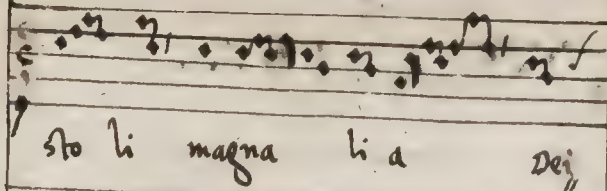 sto li magna li a Dei